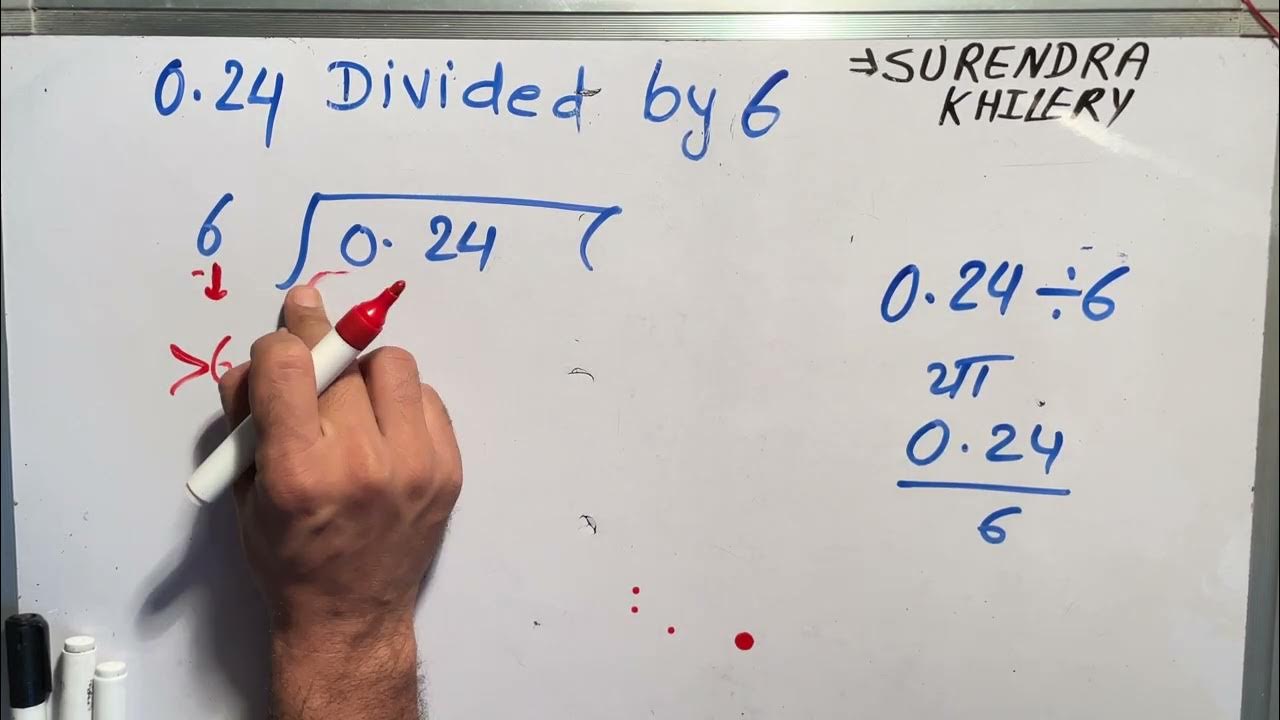 0.24 Divided by 6
⇒SURENDRA
KHILERY
6 0.24
>6
0.24÷6
या
0.24
6